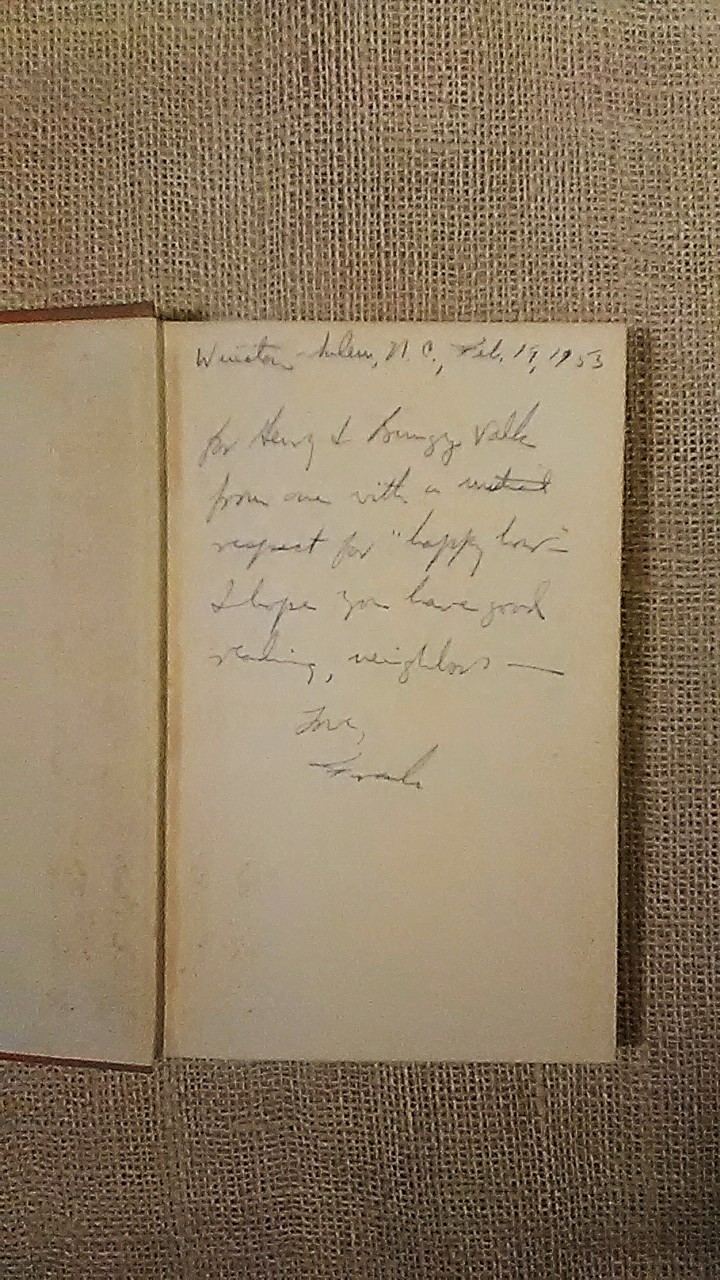 Winston-Salem, N.C., Feb. 19, 1953
for Henry & Valk
from one with a mutual
respect for "happy hour"
I hope you have good
reading, neighbors —
Love,